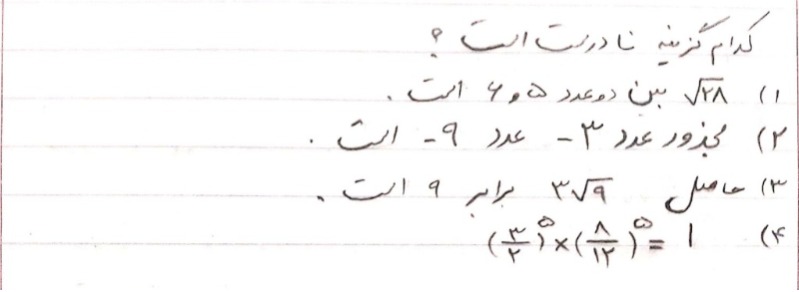 کدام گزینه نادرست است ؟
۱) √۲۸ بین دو عدد ۵ و ۶ است .
۲) مجذور عدد ۳- عدد ۹- است .
۳) حاصل ۳√۹ برابر ۹ است .
۴) (۳/۲)^۵ × (۸/۱۲)^۵ = ۱